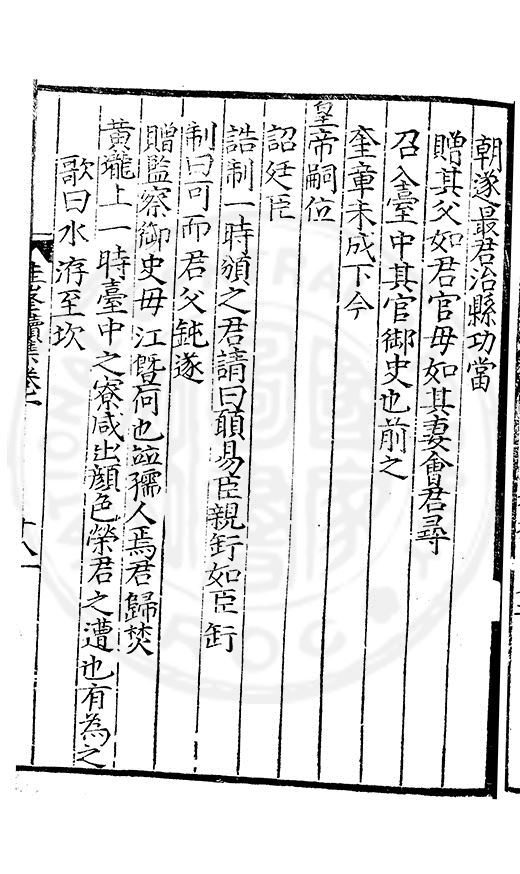 朝遂最君治縣功當
贈其父如君官毋如其妻會君尋
召入臺中其官御史也前之
奎章未成下今
皇帝嗣位
詔廷臣
誥制一時頒之君請曰願易臣親銜如臣銜
制曰可而君父鈍遂
贈監察御史毋江暨何也並孺人焉君歸焚
黃壠上一時臺中之寮咸出顔色榮君之遭也有為之
歌曰水洊至坎
圭峯續集卷二
十八